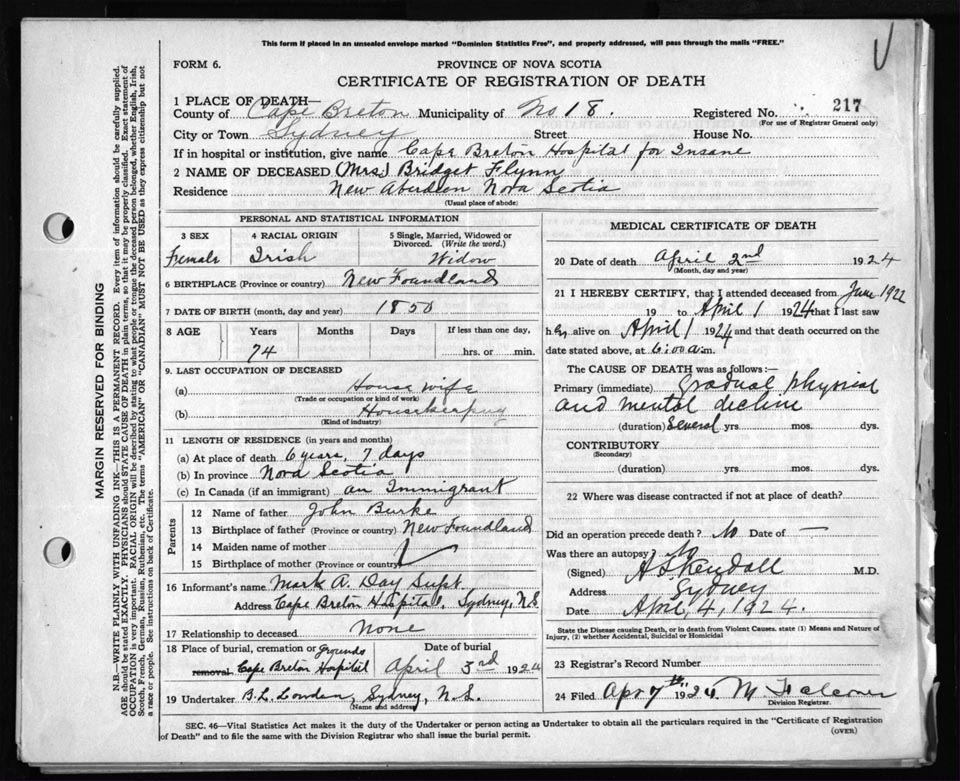 This form if placed in an unsealed envelope marked "Dominion Statistics Free", and properly addressed, will pass through the mails "FREE."
FORM 6.
PROVINCE OF NOVA SCOTIA
CERTIFICATE OF REGISTRATION OF DEATH
1 PLACE OF DEATH—
County of Cape Breton Municipality of No 18. Registered No. 217
(For use of Registrar General only)
City or Town Sydney Street House No.
If in hospital or institution, give name Cape Breton Hospital for Insane
2 NAME OF DECEASED (Mrs) Bridget Flynn
Residence New Aberdeen Nova Scotia
(Usual place of abode)
PERSONAL AND STATISTICAL INFORMATION
3 SEX 4 RACIAL ORIGIN 5 Single, Married, Widowed or Divorced. (Write the word.)
Female Irish Widow
6 BIRTHPLACE (Province or country) New Foundland
7 DATE OF BIRTH (month, day and year) 1850
8 AGE Years Months Days If less than one day,
74 hrs. or min.
9. LAST OCCUPATION OF DECEASED
(a) House wife
(Trade or occupation or kind of work)
(b) Housekeeping
(Kind of industry)
11 LENGTH OF RESIDENCE (in years and months)
(a) At place of death 6 years, 7 days
(b) In province Nova Scotia
(c) In Canada (if an immigrant) an Immigrant
Parents
12 Name of father John Burke
13 Birthplace of father (Province or country) New Foundland
14 Maiden name of mother
15 Birthplace of mother (Province or country)
16 Informant's name Mark A. Day Supt
Address Cape Breton Hospital, Sydney, N.S.
17 Relationship to deceased None
18 Place of burial, cremation or removal Date of burial
Grounds Cape Breton Hospital April 3rd 1924
19 Undertaker B.L. Lowden, Sydney, N.S.
(Name and address)
MEDICAL CERTIFICATE OF DEATH
20 Date of death April 2nd 1924
(Month, day and year)
21 I HEREBY CERTIFY, that I attended deceased from June 1922
19 to April 1 1924 that I last saw
her alive on April 1 1924 and that death occurred on the
date stated above, at 6:00 a.m.
The CAUSE OF DEATH was as follows:—
Primary (immediate) Gradual physical
and mental decline
(duration) Several yrs. mos. dys.
CONTRIBUTORY
(Secondary)
(duration) yrs. mos. dys.
22 Where was disease contracted if not at place of death?
Did an operation precede death? No Date of —
Was there an autopsy? No
(Signed) A S Kendall M.D.
Address Sydney
Date April 4, 1924.
State the Disease causing Death, or in death from Violent Causes. state (1) Means and Nature of
Injury, (2) whether Accidental, Suicidal or Homicidal
23 Registrar's Record Number
24 Filed Apr 7th 1924 M Falconer
Division Registrar.
SEC. 46—Vital Statistics Act makes it the duty of the Undertaker or person acting as Undertaker to obtain all the particulars required in the "Certificate of Registration
of Death" and to file the same with the Division Registrar who shall issue the burial permit.
(OVER)
MARGIN RESERVED FOR BINDING
N.B.—WRITE PLAINLY WITH UNFADING INK—THIS IS A PERMANENT RECORD. Every item of information should be carefully supplied.
AGE should be stated EXACTLY. PHYSICIANS should STATE CAUSE OF DEATH in plain terms, so that it may be properly classified. Exact statement of
OCCUPATION is very important. RACIAL ORIGIN will be described by stating to what people or tongue the deceased person belonged, whether English, Irish,
Scotch, French, German, Russian, Ruthenian, etc. The terms "AMERICAN" OR "CANADIAN" MUST NOT BE USED as they express citizenship but not
a race or people. See instructions on back of Certificate.